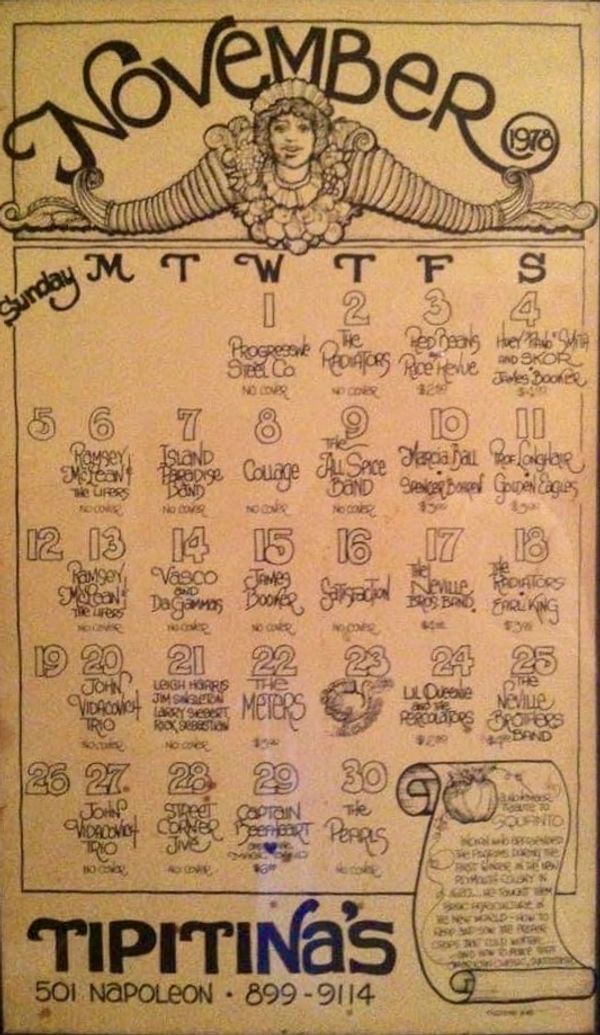 NOVEMBER
1978
Sunday M T W T F S
1
Progressive
Steel Co
NO COVER
2
The
Radiators
NO COVER
3
Red Beans
Rice Revue
4
Huey "Piano" Smith
AND SKOR
James Booker
5
6
Ramsey
McLean &
The Lifers
NO COVER
7
Island
Paradise
Band
NO COVER
8
Collage
NO COVER
9
The
All Spice
Band
NO COVER
10
Marcia Ball
Spencer Bohren
11
Prof. Longhair
Golden Eagles
12
13
Ramsey
McLean &
The Lifers
NO COVER
14
Vasco
and
Da Gammas
NO COVER
15
James
Booker
NO COVER
16
Satisfaction
NO COVER
17
The
Neville
Bros. Band
18
The
Radiators
Earl King
19
20
John
Vidacovich
Trio
NO COVER
21
Leigh Harris
Jim Singleton
Larry Siebert
Rick Sebastian
NO COVER
22
The
Meters
23
24
Lil Queenie
and the
Percolators
25
The
Neville
Brothers
Band
26
27
John
Vidacovich
Trio
NO COVER
28
Street
Corner
Jive
NO COVER
29
Captain
Beefheart
30
The
Pearls
NO COVER
A November
Tribute to
Squanto
Indian who befriended
the Pilgrims during the
first winter in the New
Plymouth Colony in
He taught them
basic agriculture in
the New World - how to
TIPITINA'S
501 NAPOLEON • 899-9114